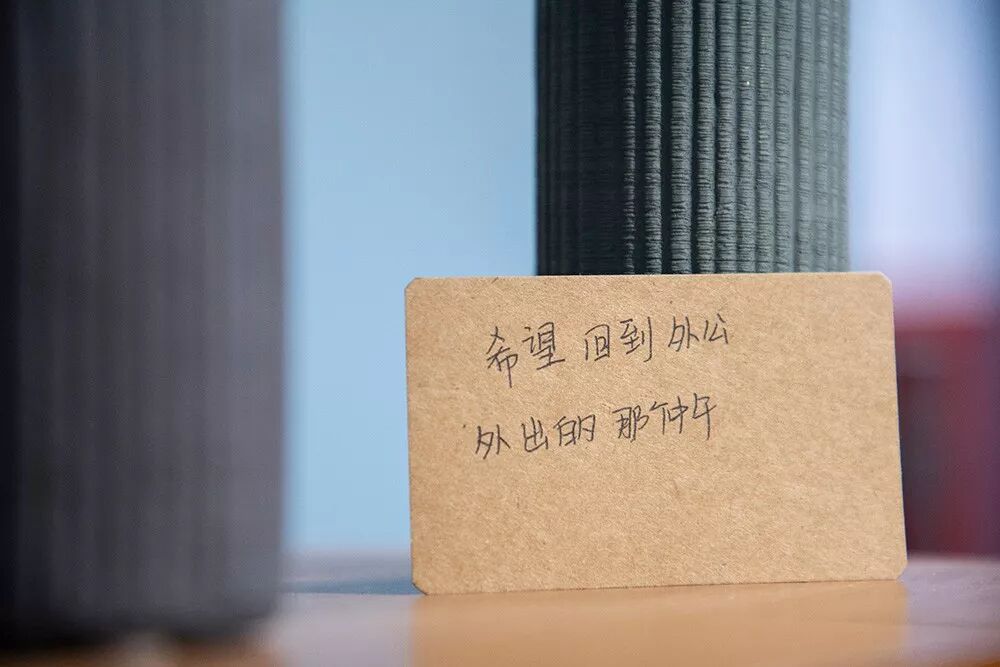 希望回到外公
外出的那个中午